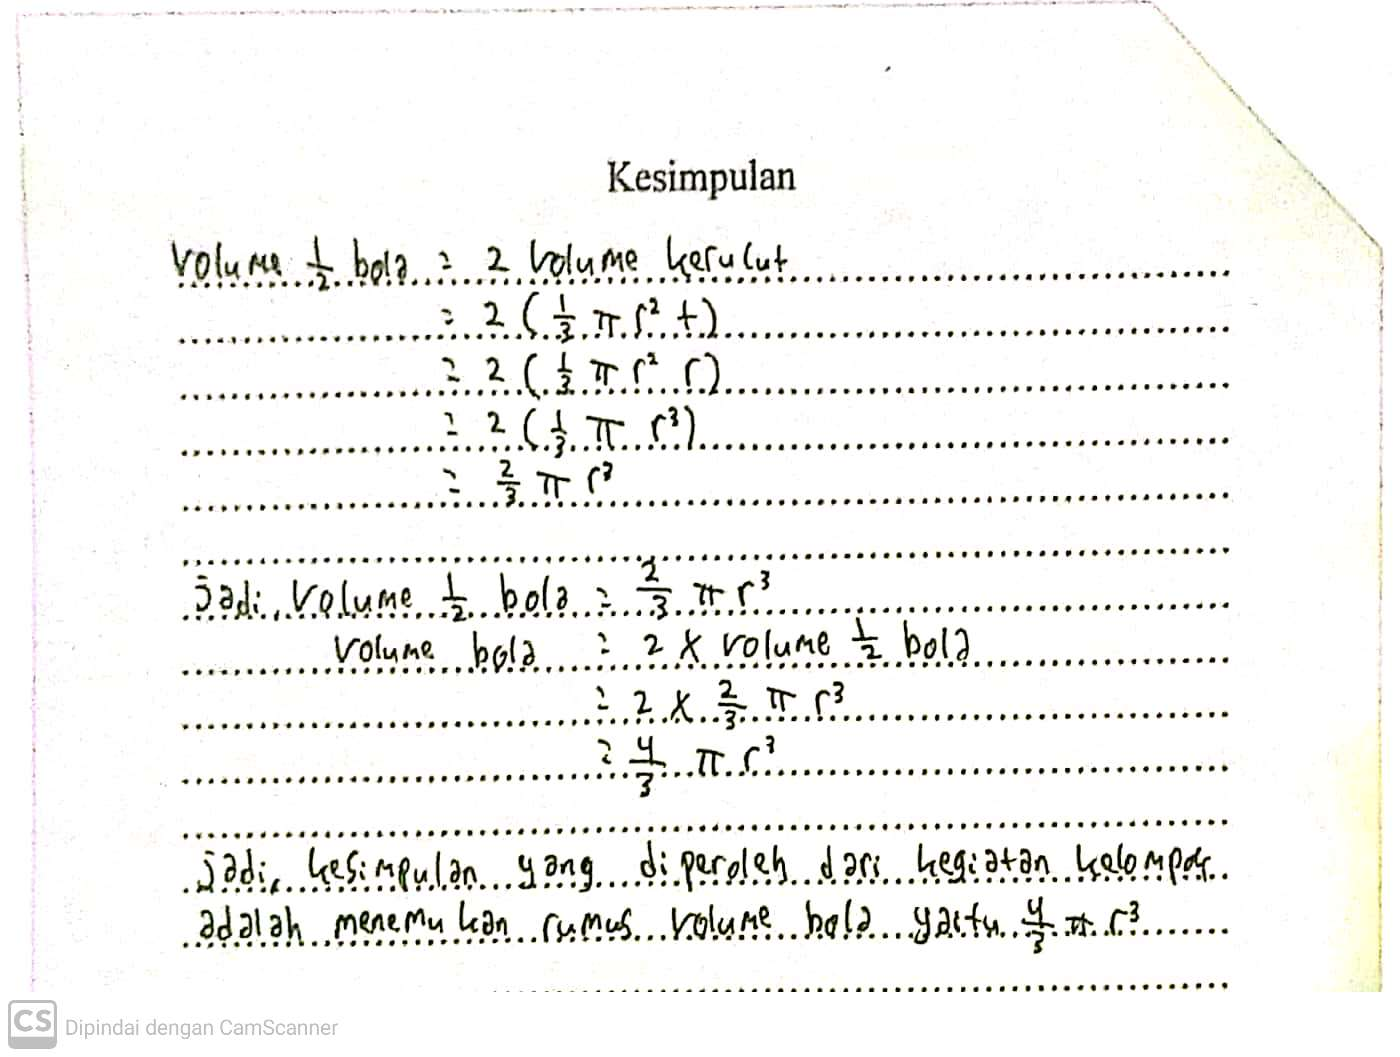 Kesimpulan
Volume 1/2 bola = 2 Volume kerucut
= 2 (1/3 π r² t)
= 2 (1/3 π r² r)
= 2 (1/3 π r³)
= 2/3 π r³
Jadi, Volume 1/2 bola = 2/3 π r³
Volume bola = 2 x volume 1/2 bola
= 2 x 2/3 π r³
= 4/3 π r³
Jadi, kesimpulan yang diperoleh dari kegiatan kelompok
adalah menemukan rumus volume bola yaitu 4/3 π r³
CS Dipindai dengan CamScanner